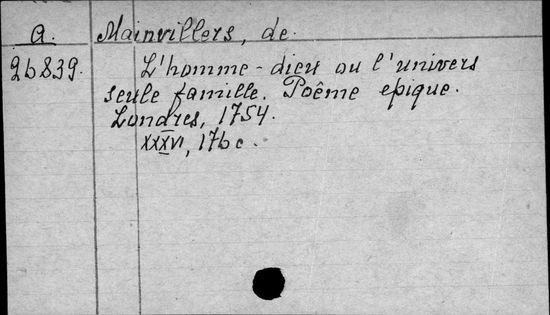 a. Mainvillers, de.
26839. L'homme-dieu ou l'univers
seule famille. Poême epique.
Londres, 1754.
XXXVI, 176 c.